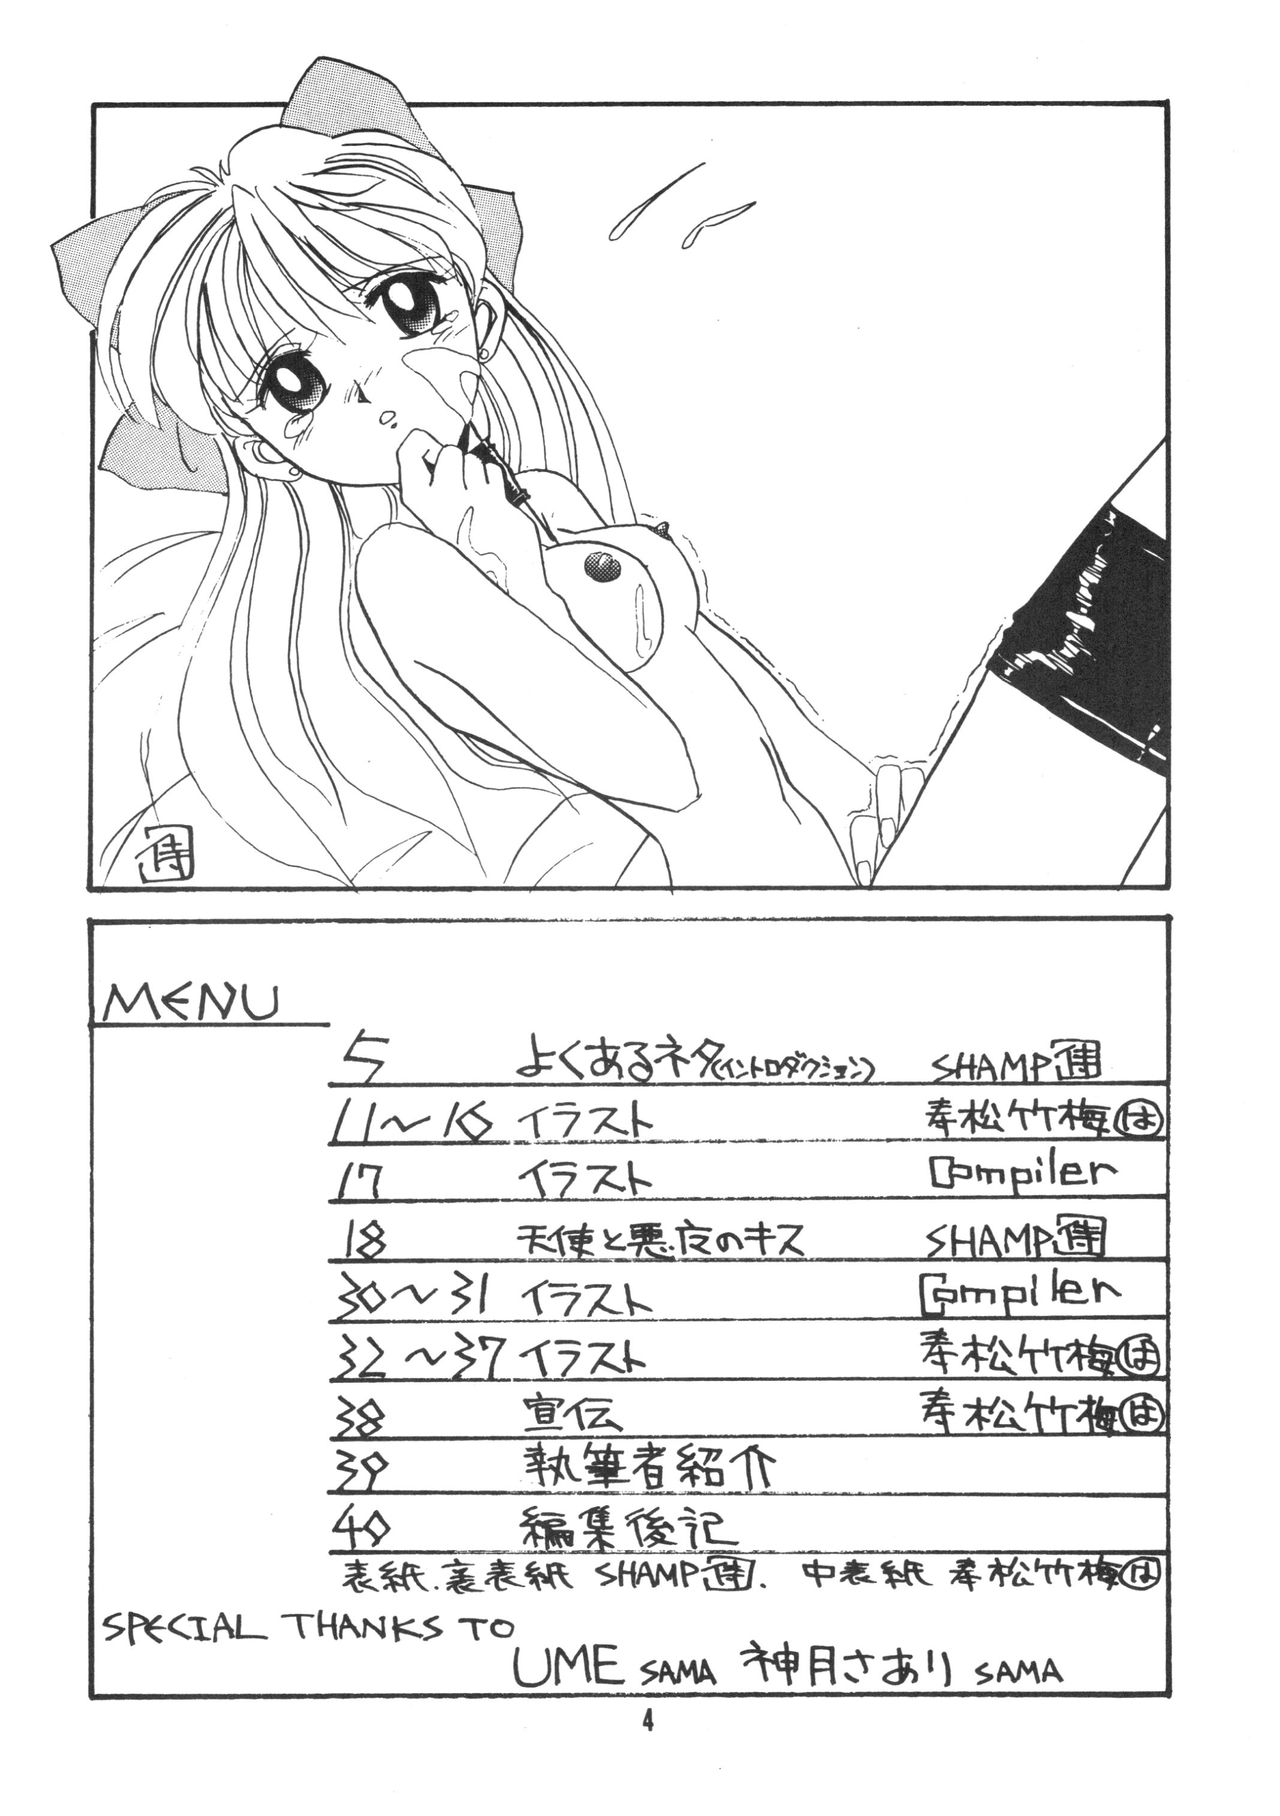 MENU
5 よくあるネタ(イントロダクション) SHAMP侍
11〜16 イラスト 寿松竹梅は
17 イラスト Compiler
18 天使と悪夜のキス SHAMP侍
30〜31 イラスト Compiler
32〜37 イラスト 寿松竹梅は
38 宣伝 寿松竹梅は
39 執筆者紹介
40 編集後記
表紙.裏表紙 SHAMP侍. 中表紙 寿松竹梅は
SPECIAL THANKS TO
UME SAMA 神月さあり SAMA
4